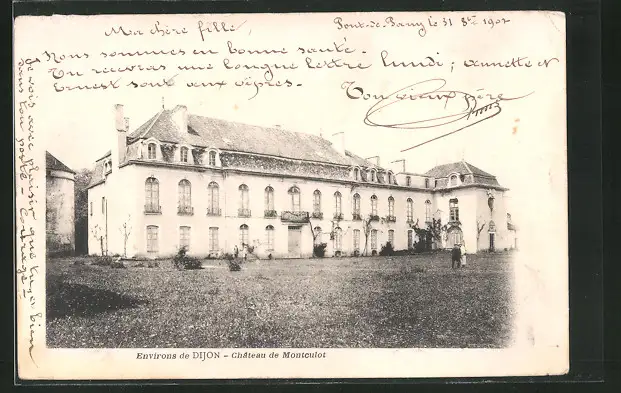 Ma chère fille,
Pont-de-Pany le 31 8bre 1902
Nous sommes en bonne santé.
Tu recevras une longue lettre lundi ; annette et
Ernest sont aux vêpres.
Ton vieux père
Je vois avec plaisir que tu as bien
dans ton poste Courage
Environs de DIJON - Château de Montculot